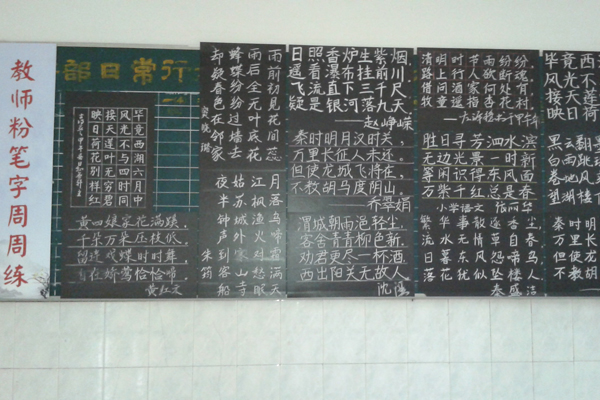 教师粉笔字周周练
部日常行
毕竟西湖六月中
风光不与四时同
接天莲叶无穷碧
映日荷花别样红
黄四娘家花满蹊，
千朵万朵压枝低。
留连戏蝶时时舞，
自在娇莺恰恰啼
黄红文
雨前初见花间蕊
雨后全无叶底花
蜂蝶纷纷过墙去
却疑春色在邻家
月落乌啼霜满天
江枫渔火对愁眠
姑苏城外寒山寺
夜半钟声到客船
日照香炉生紫烟
遥看瀑布挂前川
飞流直下三千尺
疑是银河落九天
——赵峥嵘
秦时明月汉时关，
万里长征人未还。
但使龙城飞将在，
不教胡马度阴山。
乔翠娟
渭城朝雨浥轻尘，
客舍青青柳色新。
劝君更尽一杯酒，
西出阳关无故人
清明时节雨纷纷
路上行人欲断魂
借问酒家何处有
牧童遥指杏花村
胜日寻芳泗水滨
无边光景一时新
等闲识得东风面
万紫千红总是春
小学语文 张丽华
繁华事散逐香尘
流水无情草自春
日暮东风怨啼鸟
落花犹似坠楼人
秦盛洁
毕竟西
风光不
接天莲
映日荷
黑云翻
白雨跳
卷地风
望湖楼
秦时明
万里长
但使龙
不教胡